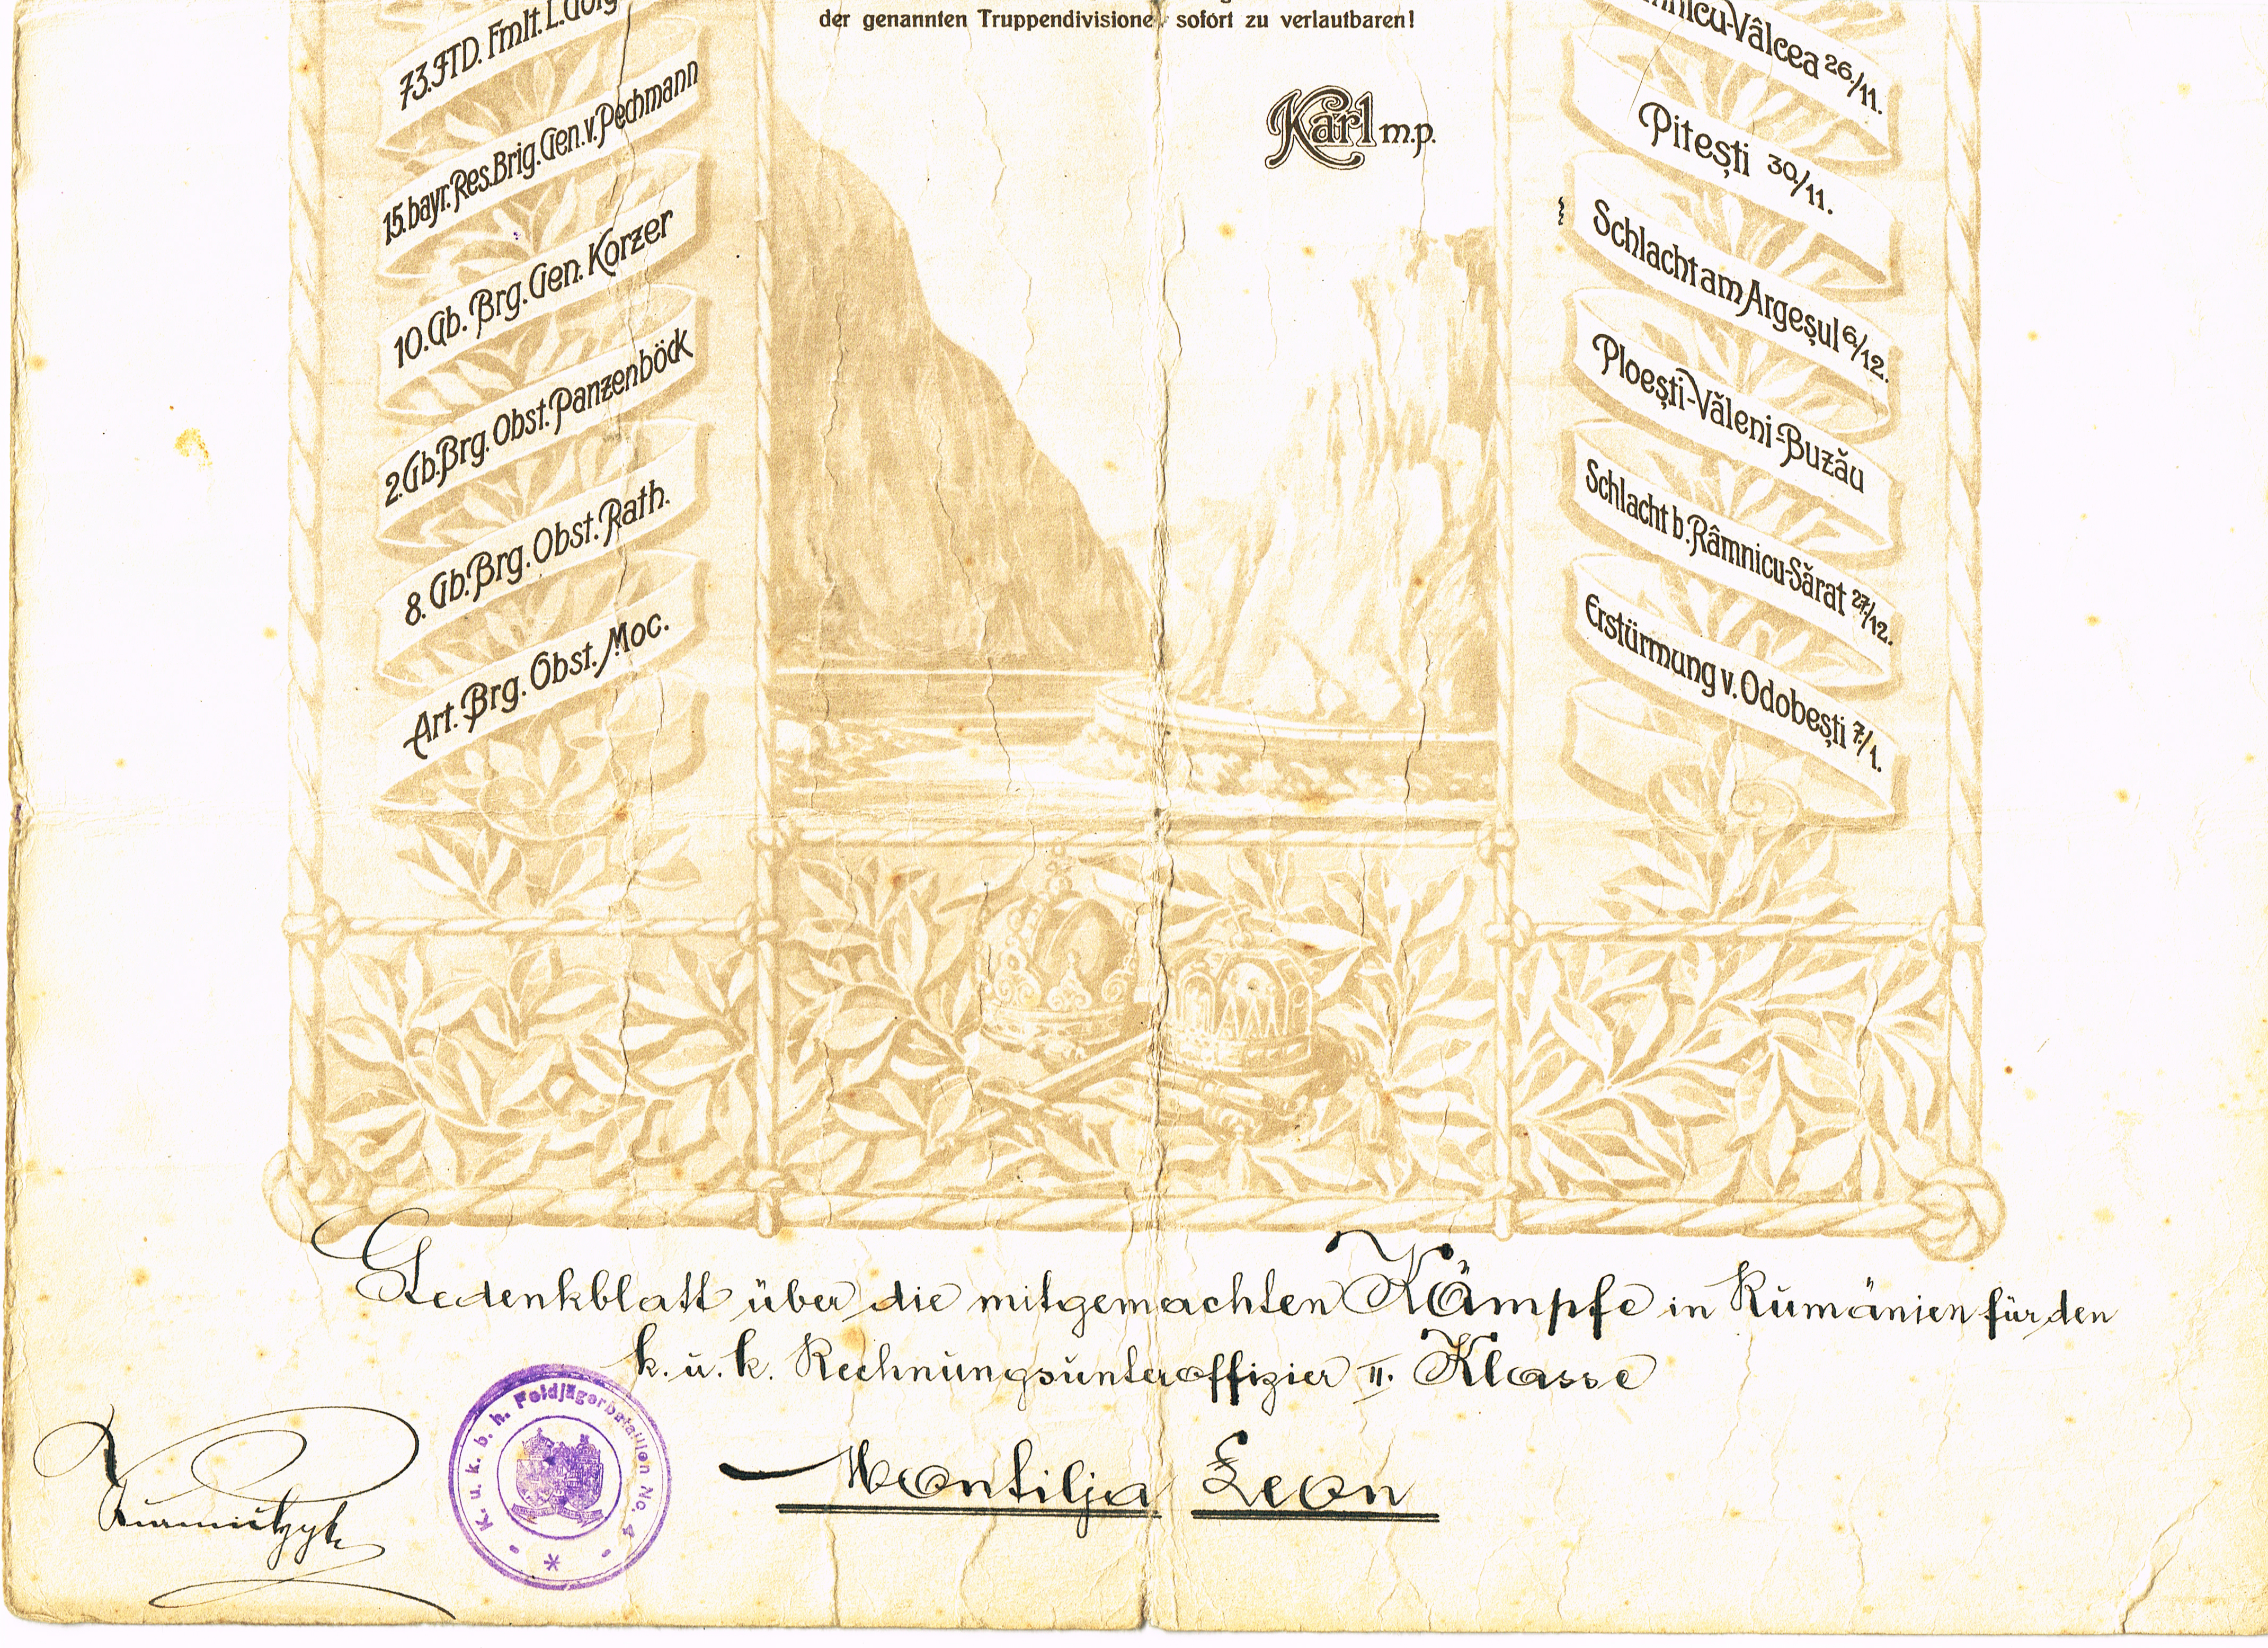 der genannten Truppendivisionen sofort zu verlautbaren!
Karl m.p.
73. ITD. Fmlt. L.
15. bayr. Res. Brig. Gen. v. Pechmann
10. Gb. Brg. Gen. Korzer
2. Gb. Brg. Obst. Panzenböck
8. Gb. Brg. Obst. Rath.
Art. Brg. Obst. Moc.
-Vâlcea 26./11.
Pitești 30./11.
Schlacht am Argeșul 6./12.
Ploești-Văleni-Buzău
Schlacht b. Râmnicu-Sărat 27./12.
Erstürmung v. Odobești 7./1.
Gedenkblatt über die mitgemachten Kämpfe in Rumänien für den
k. u. k. Rechnungsunteroffizier II. Klasse
Montilja Leon
K. u. k. b. h. Feldjägerbataillon No. 4